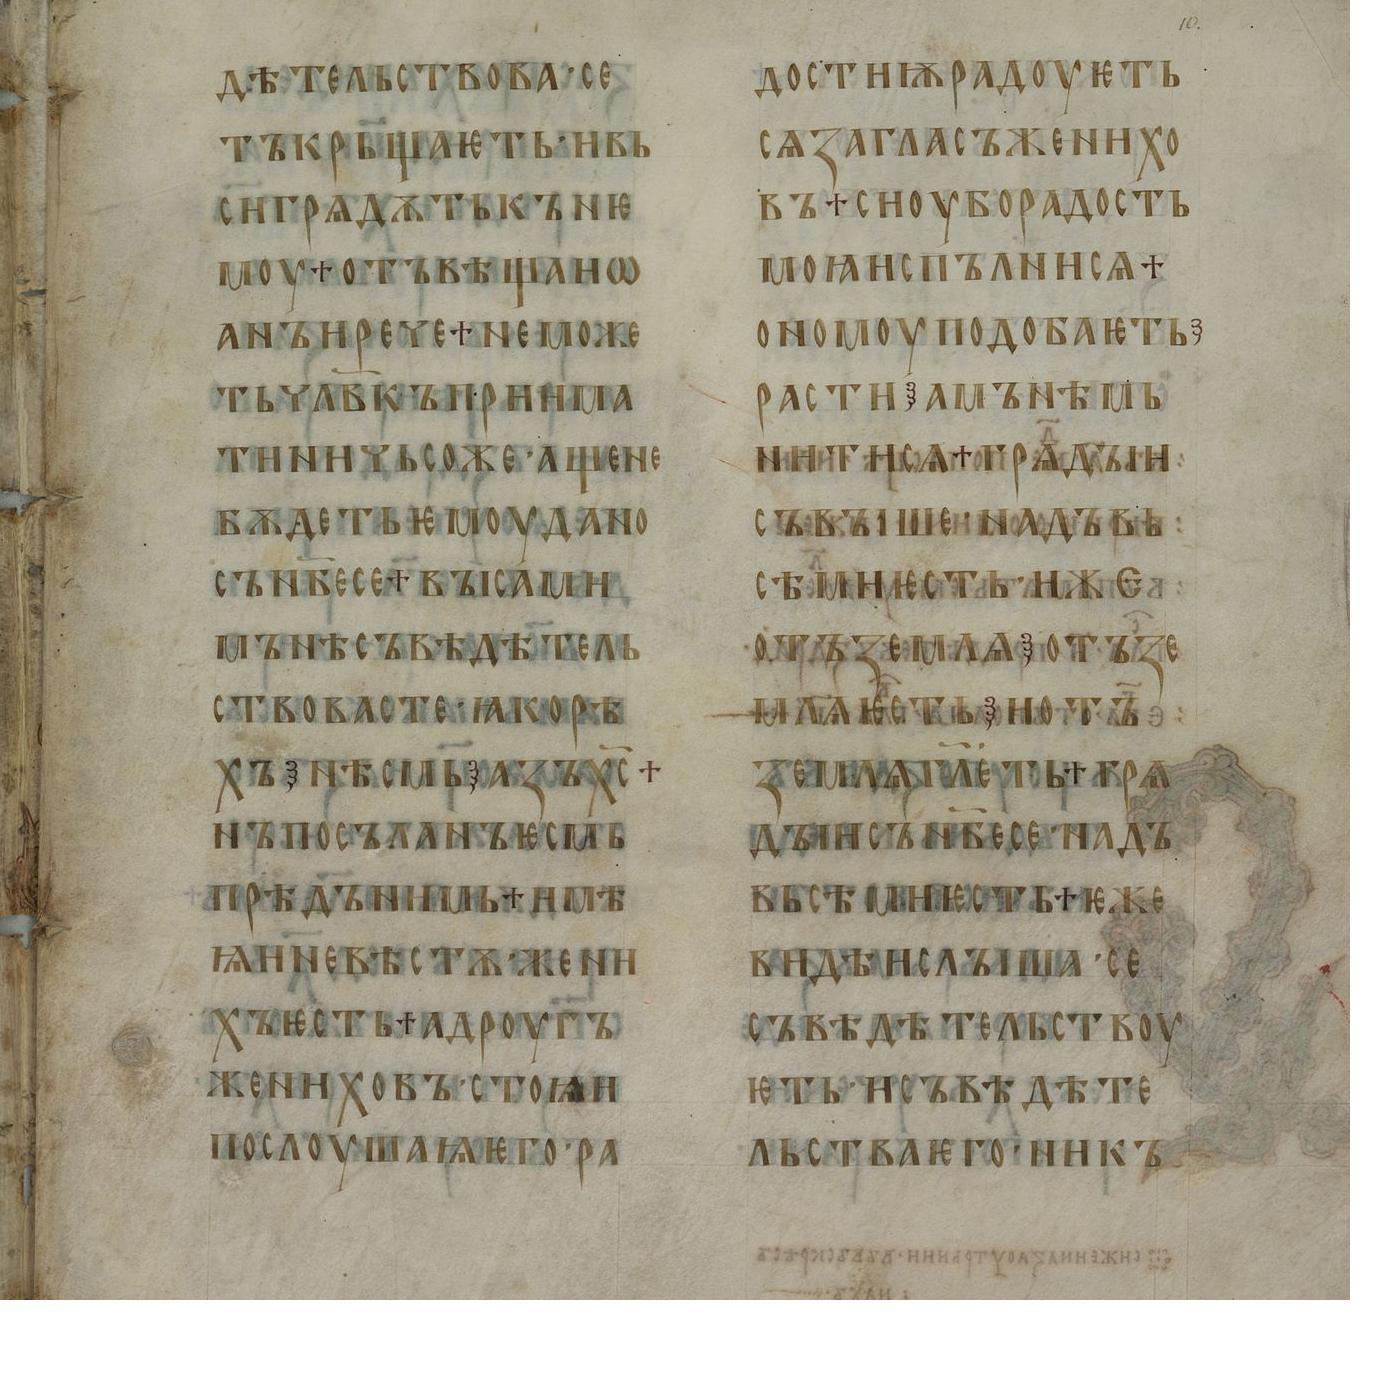 10.
дѣтельствова·се
тъкрьщаѥть·ивь
с҃игрѧдѫтькънѥ
моу+отъвѣщаиѡ
анъирече+неможе
тьчл҃вкъприима
тиничьсоже·ащене
бѫдетьѥмоудано
сън҃бесе+въісами
мънѣсъвѣдѣтель
ствовасте·ꙗкорѣ
хъꙁнѣсмьꙁазъх҃с+
нъпосъланъѥсмь
прѣдънимь+имѣ
ꙗиневѣстѫ·жени
хъѥсть+адроугъ
жениховъ·стоꙗи
послоушаꙗѥго·ра
достиѭрадоуѥть
сѧзагласъженихо
въ+синоуборадость
моꙗиспълнисѧ+
ономоуподобаѥтьꙁ
растиꙁамънѣмь
нитисѧ+грѧдъіи
съвъіше·надъвь
сѣмиѥсть·иже
отъземлѧꙁотъзе
млѧѥстьꙁиотъ
землѧгл҃еть+грѧ
дъіисън҃бесе·надъ
вьсѣмиѥсть+ѥже
видѣислъіша·се
съвѣдѣтельствоу
ѥть·исъвѣдѣте
льстваѥго·никъ